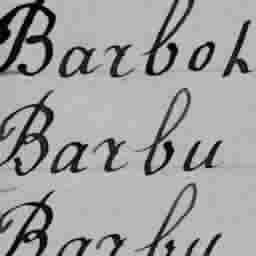 Barboh
Barbu
Barbu